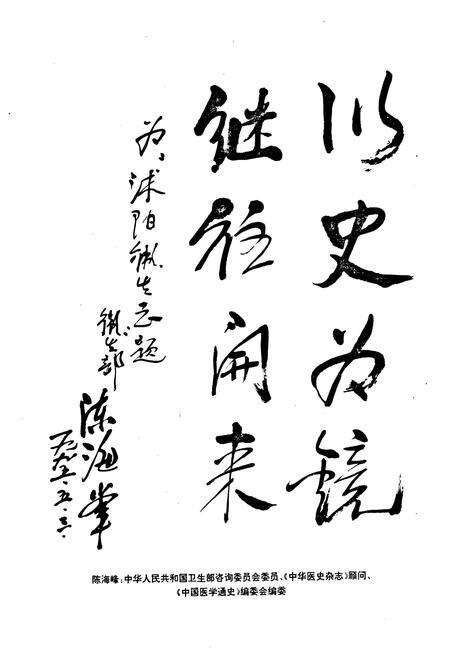 以史为镜
继往开来
为沭阳卫生志题
卫生部
陈海峰
一九九五.五.三.
陈海峰：中华人民共和国卫生部咨询委员会委员、《中华医史杂志》顾问、
《中国医学通史》编委会编委